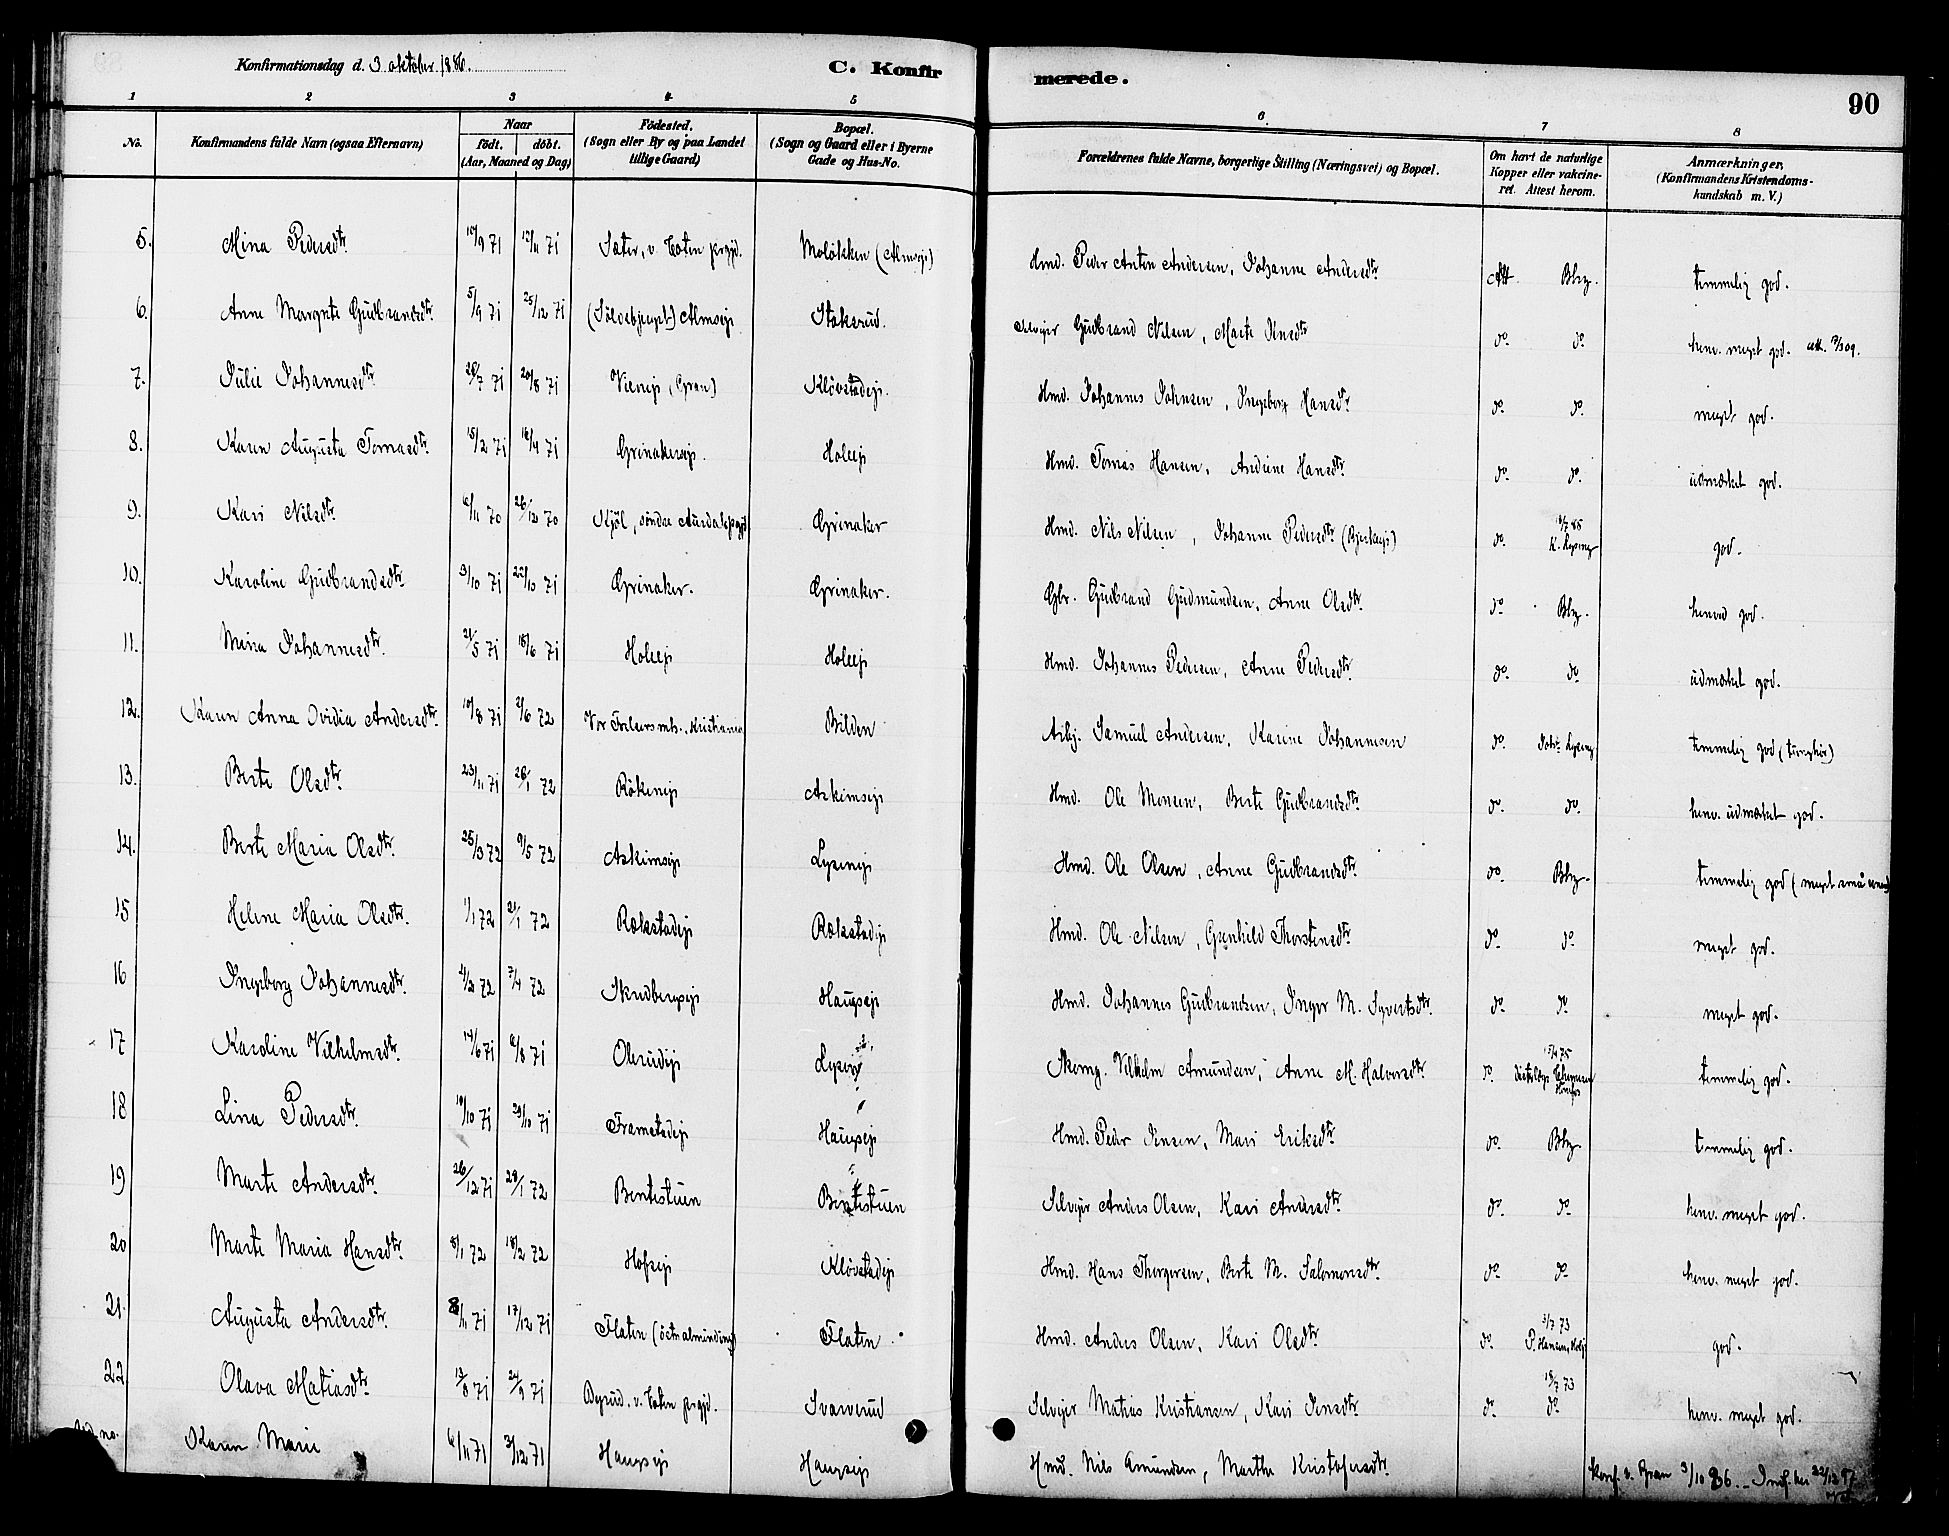 Konfirmationsdag d. 3 oktober 1886.
C. Konfirmerede.
90
1 2 3 4 5 6 7 8
No. Konfirmandens fulde Navn (ogsaa Efternavn) Naar födt. döbt. (Aar, Maaned og Dag) Födested. (Sogn eller By og paa Landet tillige Gaard) Bopæl. (Sogn og Gaard eller i Byerne Gade og Hus-No. Forældrenes fulde Navne, borgerlige Stilling (Næringsvei) og Bopæl. Om havt de naturlige Kopper eller vakcineret. Attest herom. Anmærkninger, (Konfirmandens Kristendomskundskab m. V.)
5. Mina Pedersdtr. 10/9 71 12/11 71 Sæter, v. Toten prgjd. Moløkken (Almsejr) Hmd. Peder Anton Andersen, Johanne Andersdtr. Att. Bhz. temmelig god.
6. Anne Margrete Gudbrandsdtr. 5/9 71 25/12 71 Almsejr Staksrud. Selvejer Gudbrand Nilsen, Marte Jensdtr do. do. henv. meget god.
7. Julie Johannesdtr 26/7 71 20/8 71 Vienejr (Gran) Kløvstadejr. Hmd. Johannes Johnsen, Ingeborg Hansdtr. do. do. meget god.
8. Karen Augusta Tomasdtr. 15/2 71 16/4 71 Grinakerejr. Holeejr Hmd. Tomas Hansen, Andrine Hansdtr. do. do. udmærket god.
9. Kari Nilsdtr. 6/11 70 26/12 70 Kjöl, söndre Aurdalsprgjd Grinaker Hmd. Nils Nilsen, Johanne Pedersdtr. do. K. Lyseng god.
10. Karoline Gudbrandsdtr. 3/10 71 22/10 71 Grinaker. Grinaker. Gbr. Gudbrand Gudmundsen, Anne Olsdtr. do. Bhz. henved god.
11. Mina Johannesdtr. 21/5 71 18/6 71 Holeejr Holeejr Hmd. Johannes Pedersen, Anne Pedersdtr. do. do. udmærket god.
12. Karen Anna Ovidia Andersdtr. 10/8 71 2/6 72 Vor Frelsers mh., Kristiania Bilden Arbj. Samuel Andersen, Karine Johannesen do. Joh. Lyseng temmelig god (tunghör)
13. Berte Olsdtr. 23/11 71 28/1 72 Rökenejr Askimsejr Hmd. Ole Monsen, Berte Gudbrandsdtr. do. do. henv. udmærket god.
14. Berte Maria Olsdtr. 25/3 72 9/5 72 Askimsejr Lysenejr Hmd. Ole Olsen, Anne Gudbrandsdtr. do. Bhz. temmelig god (meget små evner)
15 Helene Maria Olsdtr. 1/1 72 21/1 72 Rækstadejr Rækstadejr Hmd. Ole Nilsen, Gunhild Thorstensdtr. do. do. meget god.
16 Ingeborg Johannesdtr. 2/2 72 7/4 72 Skredbergsejr Haugsejr Hmd. Johannes Gudbrandsen, Inger M. Syvertsdtr. do. do. meget god.
17 Karoline Vilhelmsdtr. 14/6 71 6/8 71 Olerudejr Lysenejr Skomg. Vilhelm Amundsen, Anne M. Halvorsdtr do. temmelig god.
18 Lina Pedersdtr. 10/10 71 29/10 71 Framstadejr Haugsejr Hmd. Peder Jensen, Mari Eriksdtr do. Bhz. temmelig god.
19 Marte Andersdtr. 26/12 71 28/1 72 Bentestuen Bentestuen Selvejer Anders Olsen, Kari Andersdtr. do. do. henv. meget god.
20 Marte Maria Hansdtr. 8/1 72 18/2 72 Hofsejr Kløvstadejr Hmd. Hans Thorgersen, Berte M. Salomonsdtr. do. do. henv. meget god.
21. Augusta Andersdtr. 8/11 71 17/12 71 Flaten (östr. alminding) Flaten Hmd. Anders Olsen, Kari Olsdtr do. 3/7 73 P. Hansen, god.
22 Olava Matiasdtr. 13/8 71 24/9 71 Byrud, v. Toten prgjd. Svarverud Selvejer Matias Kristiansen, Kari Jensdtr. do. 18/7 73 do. henv. meget god.
no. Karen Marie 6/11 71 3/12 71 Haugsejr Haugsejr Hmd. Nils Amundsen, Marthe Kristofersdtr. Konf. v. Gran 3/10 86. _ Indf. her 22/12 97